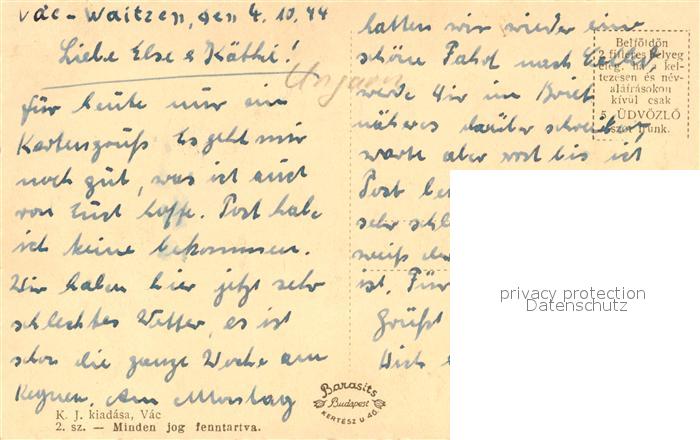 Vác-Waitzen, den 4.10.44
Liebe Else & Käthi!
Ungarn
für heute nur ein
Kartengruß. Es geht mir
noch gut, was ich auch
von Euch hoffe. Post habe
ich keine bekommen.
Wir haben hier jetzt sehr
schlechtes Wetter, es ist
schon die ganze Woche am
Regnen. Am Montag
K. J. kiadása, Vác
2. sz. — Minden jog fenntartva.
Barasits
Budapest
KERTÉSZ U 40.
hatten wir wieder eine
schöne Fahrt nach
werde Dir im Brief
näheres darüber schreiben
warte aber erst bis ich
Post be
sehr schl
weiß
ist. Für
Grüßt
Dich
Belföldön
2 filléres bélyeg
elég, ha a kel-
tezésen és név-
aláírásokon
kívül csak
5 ÜDVÖZLŐ
szót írunk.
privacy protection
Datenschutz